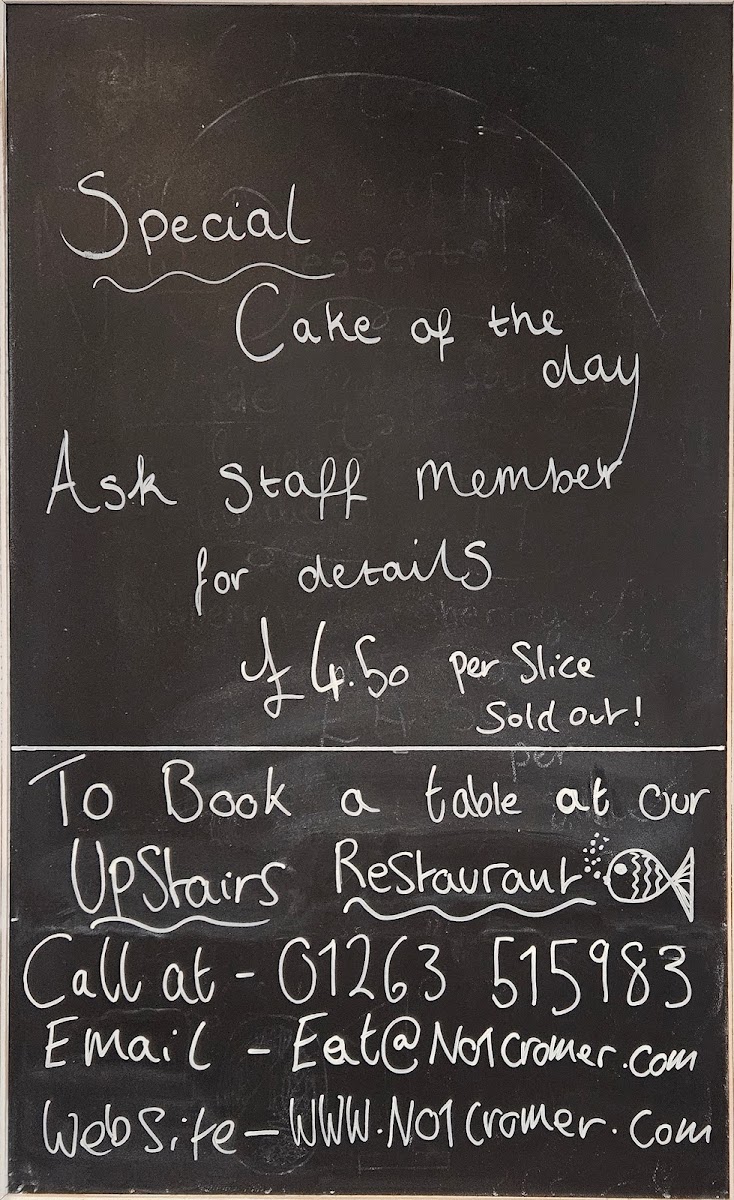 Special
Cake of the
day
Ask Staff member
for details
£4.50 per Slice
Sold out!
To Book a table at our
UpStairs Restaurant
Call at - 01263 515983
Email - Eat@No1cromer.com
WebSite - WWW.No1cromer.com